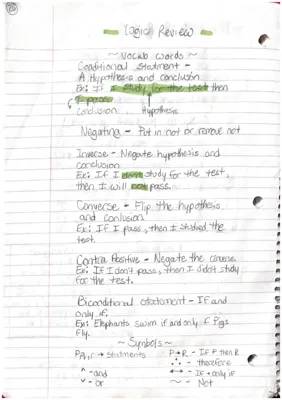 Logic Review
~ Vocab words ~
Conditional statment -
A Hypothesis and conclusion
Ex: If I study for the test then
I pass
Conclusion Hypothesis
Negating - Put in not or remove not
Inverse - Negate hypothesis and
conclusion
Ex: If I don't study for the test,
then I will not pass.
Converse - Flip the hypothesis
and conlusion
Ex: If I pass, then I studied the
test.
Contra Positive - Negate the converse
Ex: If I don't pass, then I didn't study
for the test.
Biconditional statement - If and
only if.
Ex: Elephants swim if and only if Pigs
fly.
~ Symbols ~
P, Q, r → Statments P→R - If P then R
∴ - therefore
^ - and ↔ - If + only if
v - or ~ - Not